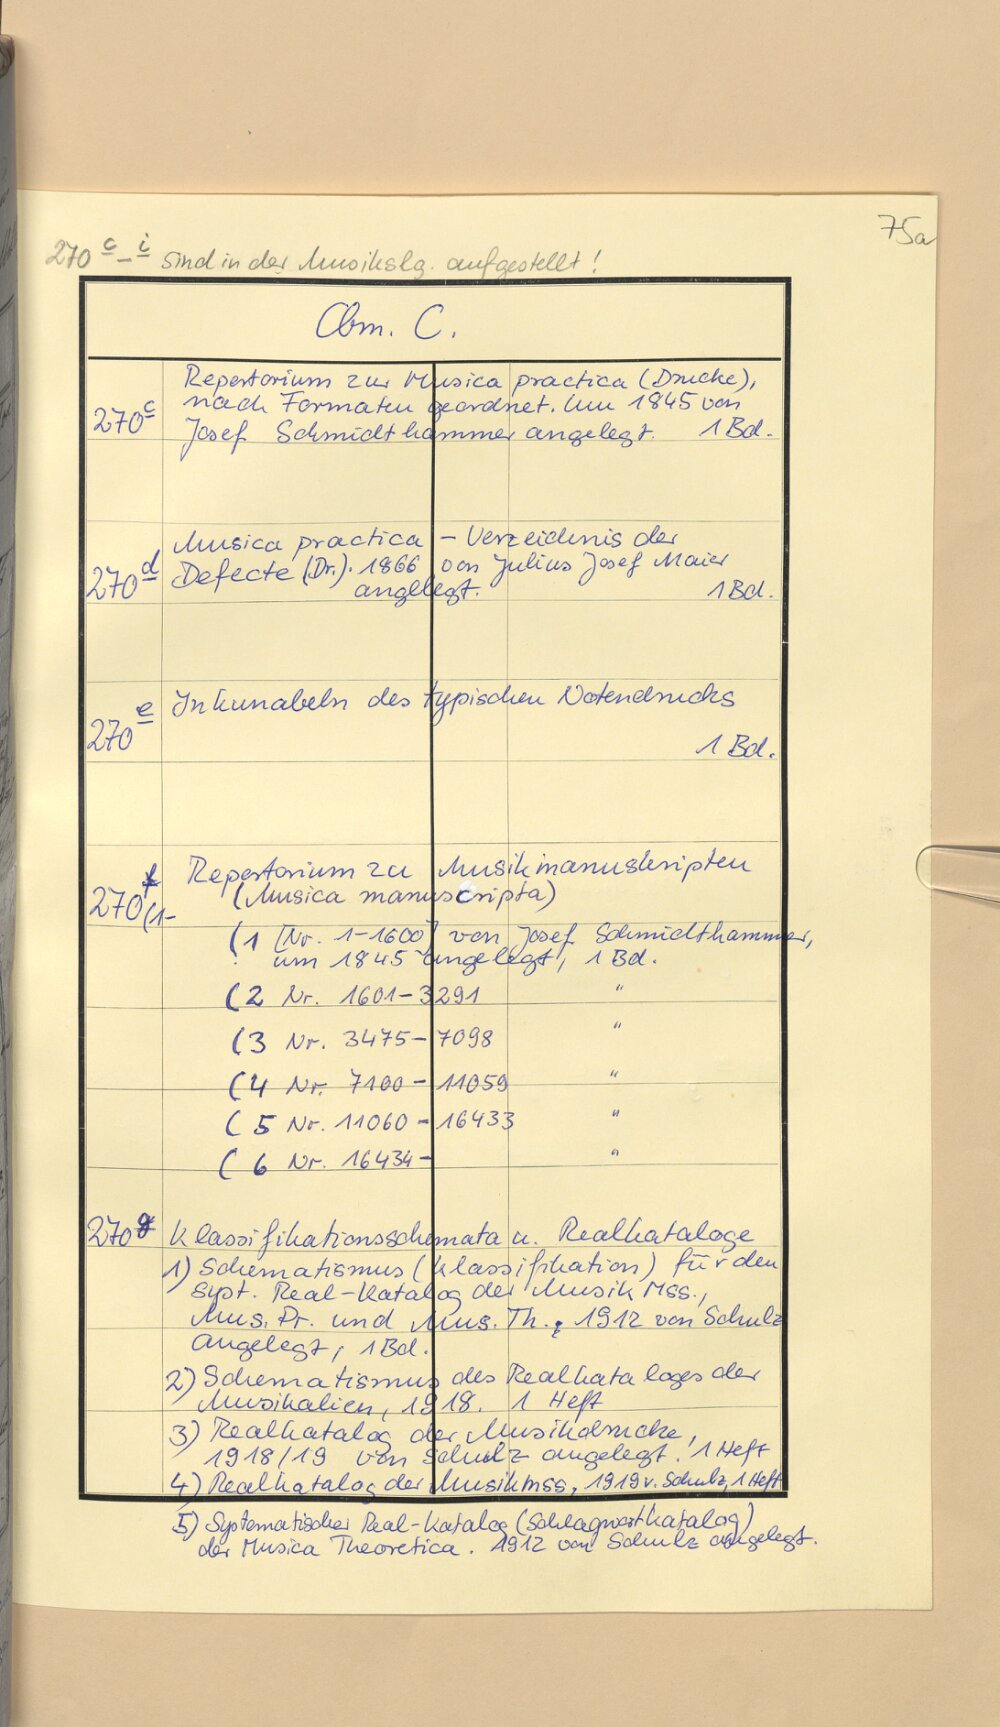 75a
270 c - i sind in der Musikslg. aufgestellt!
Cbm. C.
Repertorium zur Musica practica (Drucke),
270c nach Formaten geordnet. Um 1845 von
Josef Schmidthammer angelegt. 1 Bd.
Musica practica - Verzeichnis der
270d Defecte (Dr.). 1866 von Julius Josef Maier
angelegt. 1 Bd.
270e Inkunabeln des typischen Notendrucks
1 Bd.
Repertorium zu Musikmanuskripten
270f (1- (Musica manuscripta)
(1 [Nr. 1-1600] von Josef Schmidthammer,
um 1845 angelegt, 1 Bd.
(2 Nr. 1601-3291 "
(3 Nr. 3475-7098 "
(4 Nr. 7100-11059 "
(5 Nr. 11060-16433 "
(6 Nr. 16434- "
270g Klassifikationsschemata u. Realkataloge
1) Schematismus (Klassifikation) für den
syst. Real-Katalog der Musik Mss.,
Mus. Pr. und Mus. Th., 1912 von Schulz
angelegt, 1 Bd.
2) Schematismus des Realkataloges der
Musikalien, 1918. 1 Heft
3) Realkatalog der Musikdrucke,
1918/19 von Schulz angelegt. 1 Heft
4) Realkatalog der Musikmss, 1919 v. Schulz, 1 Heft
5) Systematischer Real-Katalog (Schlagwortkatalog)
der Musica Theoretica. 1912 von Schulz angelegt.